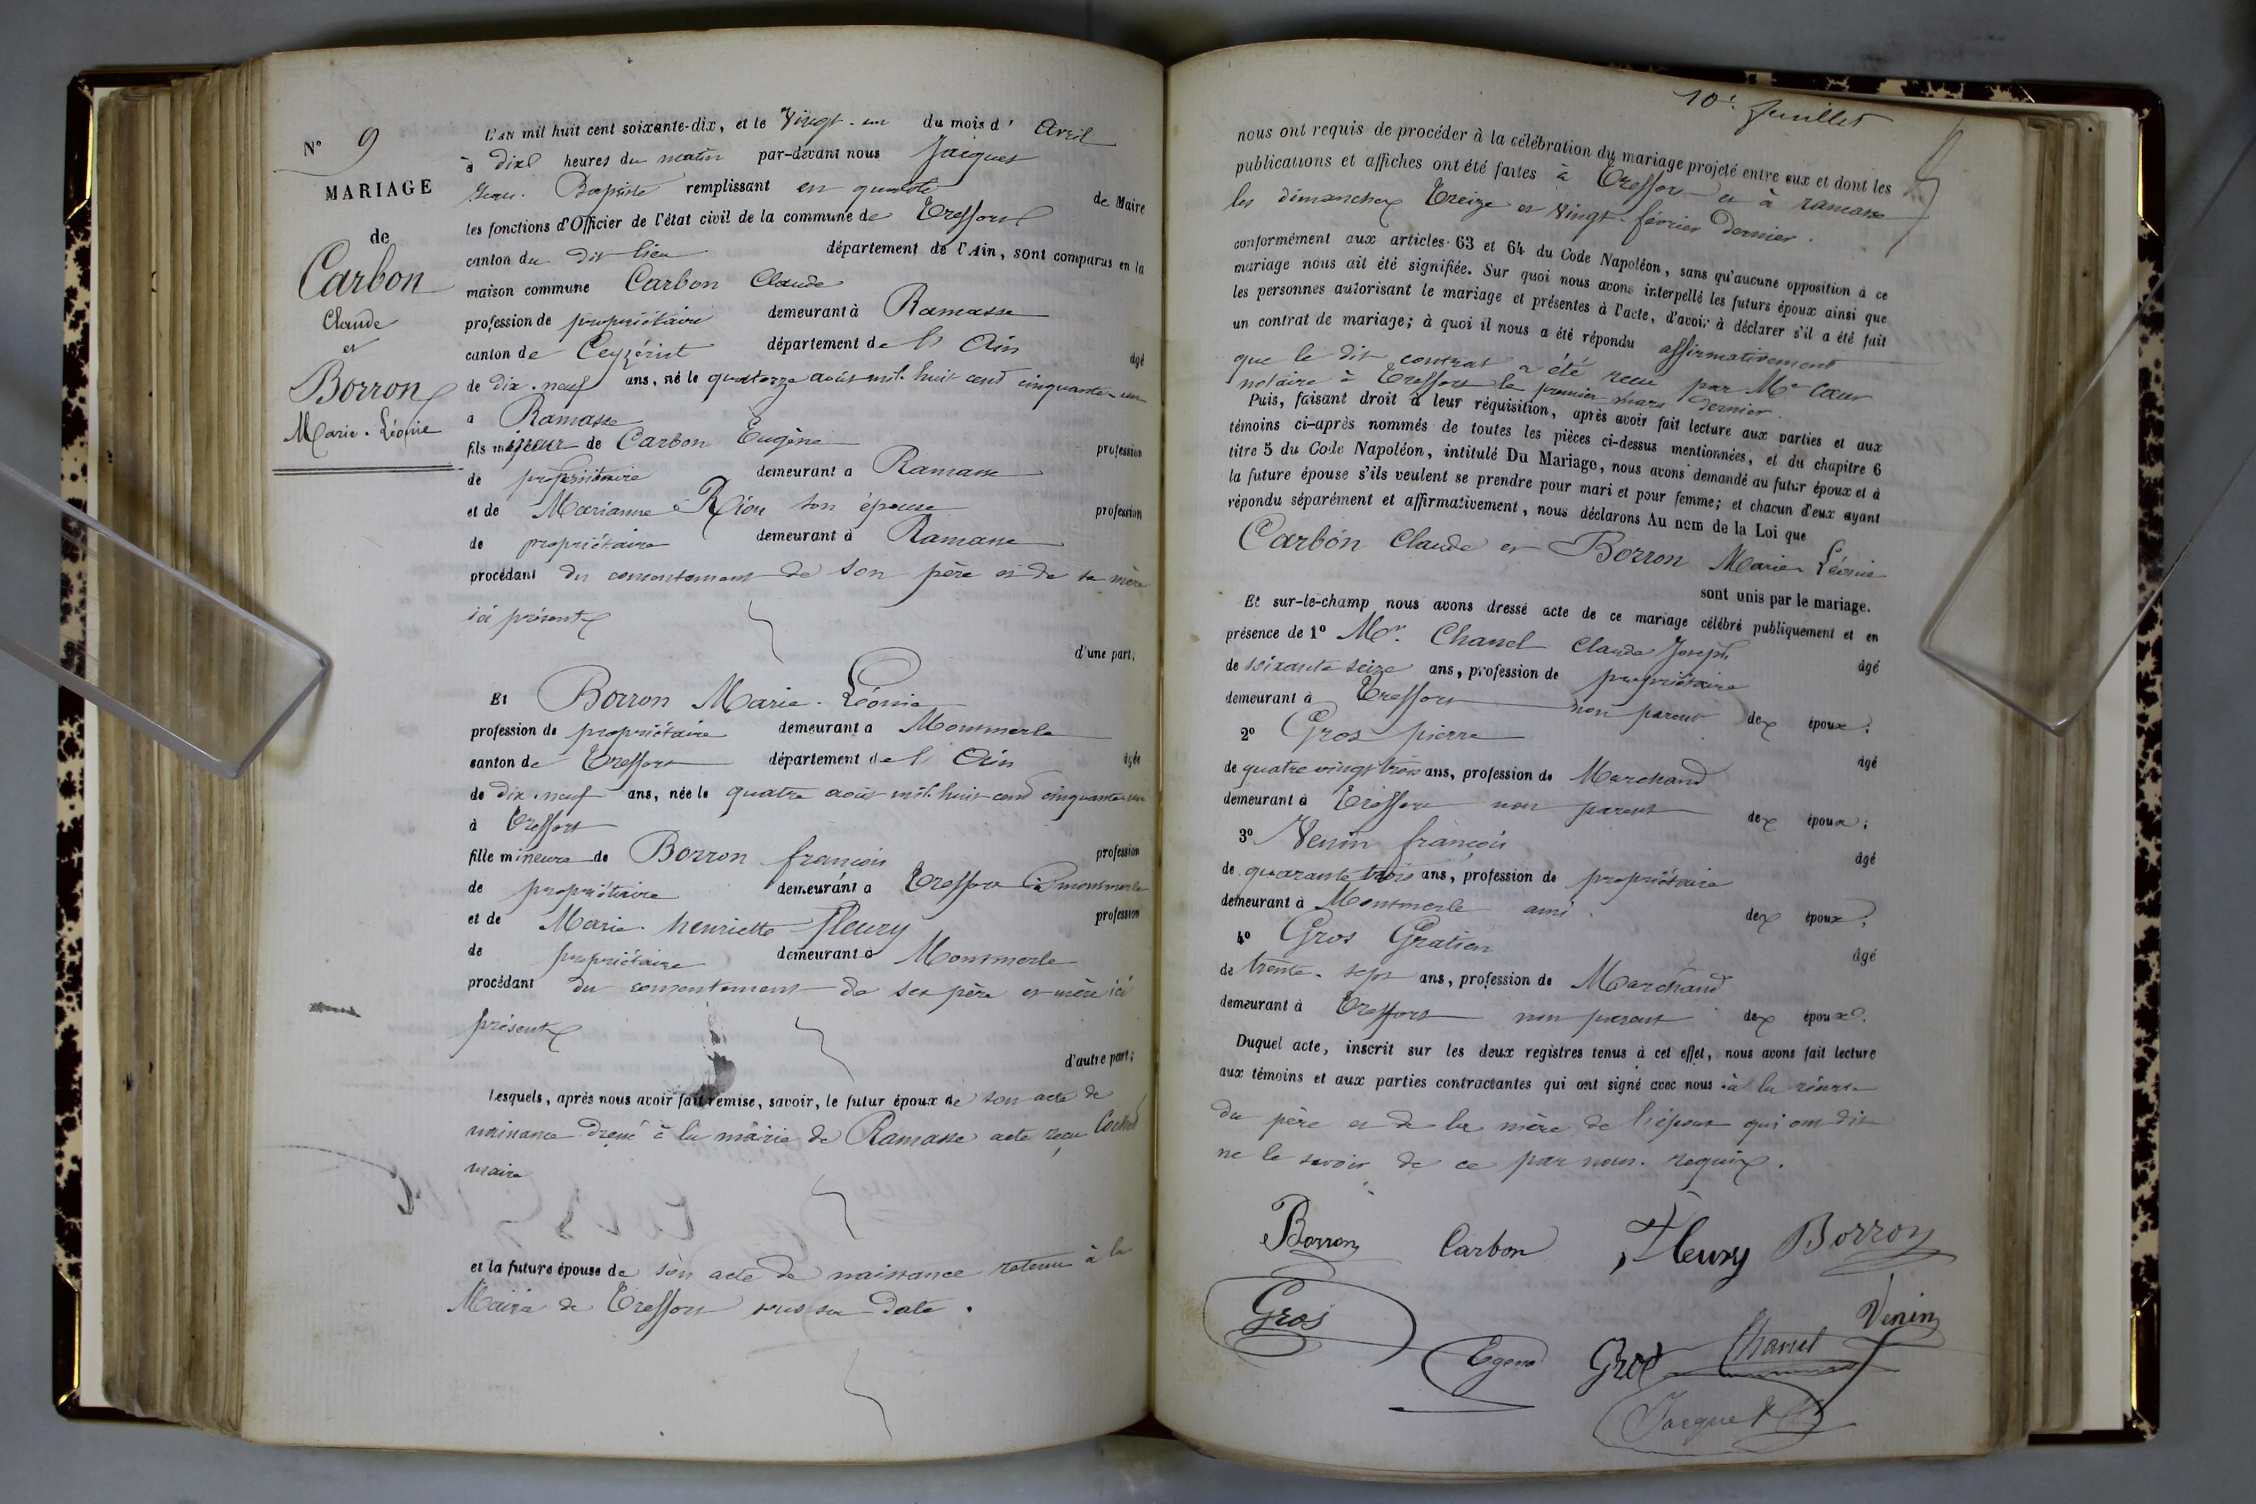 N° 9
MARIAGE
de
Carbon
Claude
et
Borron
Marie-Léonie
L'an mil huit cent soixante-dix, et le Vingt-un du mois d' Avril
à dix heures du matin par-devant nous Jacquet
Jean-Baptiste remplissant en qualité de Maire
les fonctions d'Officier de l'état civil de la commune de Treffort
canton du dit lieu département de l'Ain, sont comparus en la
maison commune Carbon Claude
profession de propriétaire demeurant à Ramasse
canton de Ceyzériat département de l'Ain âgé
de dix-neuf ans, né le quatorze août mil huit cent cinquante-un
à Ramasse
fils mineur de Carbon Eugène profession
de propriétaire demeurant à Ramasse
et de Marianne Rion son épouse profession
de propriétaire demeurant à Ramasse
procédant du consentement de son père et de sa mère
ici présents
d'une part;
Et Borron Marie-Léonie
profession de propriétaire demeurant à Montmerle
canton de Treffort département de l'Ain âgée
de dix-neuf ans, née le quatre août mil huit cent cinquante-un
à Treffort
fille mineure de Borron françois profession
de propriétaire demeurant à Treffort à montmerle
et de Marie-henriette fleury profession
de propriétaire demeurant à Montmerle
procédant du consentement de ses père et mère ici
présents
d'autre part;
Lesquels, après nous avoir fait remise, savoir, le futur époux de son acte de
naissance dressé à la mairie de Ramasse acte reçu
maire
et la future épouse de son acte de naissance retenu à la
Mairie de Treffort sous sa date.
10e Juillet
nous ont requis de procéder à la célébration du mariage projeté entre eux et dont les
publications et affiches ont été faites à Treffort et à ramasse
les dimanches treize et vingt février dernier.
conformément aux articles 63 et 64 du Code Napoléon, sans qu'aucune opposition à ce
mariage nous ait été signifiée. Sur quoi nous avons interpellé les futurs époux ainsi que
les personnes autorisant le mariage et présentes à l'acte, d'avoir à déclarer s'il a été fait
un contrat de mariage; à quoi il nous a été répondu affirmativement
que le dit contrat a été reçu par Me Cœur
notaire à Treffort le premier mars dernier.
Puis, faisant droit à leur réquisition, après avoir fait lecture aux parties et aux
témoins ci-après nommés de toutes les pièces ci-dessus mentionnées, et du chapitre 6
titre 5 du Code Napoléon, intitulé Du Mariage, nous avons demandé au futur époux et à
la future épouse s'ils veulent se prendre pour mari et pour femme; et chacun d'eux ayant
répondu séparément et affirmativement, nous déclarons Au nom de la Loi que
Carbon Claude et Borron Marie-Léonie
sont unis par le mariage.
Et sur-le-champ nous avons dressé acte de ce mariage célébré publiquement et en
présence de 1° Mr. Chanel Claude Joseph âgé
de soixante seize ans, profession de propriétaire
demeurant à Treffort non parent des époux;
2° Gros pierre âgé
de quatre vingt trois ans, profession de Marchand
demeurant à Treffort non parent des époux;
3° Venin françois âgé
de quarante trois ans, profession de propriétaire
demeurant à Montmerle ami des époux;
4° Gros Gratien âgé
de trente-sept ans, profession de Marchand
demeurant à Treffort non parent des époux.
Duquel acte, inscrit sur les deux registres tenus à cet effet, nous avons fait lecture
aux témoins et aux parties contractantes qui ont signé avec nous à la réserve
du père et de la mère de l'époux qui ont dit
ne le savoir de ce par nous requis.
Borron Carbon Fleury Borron
Gros Gros Chanel Venin
Jacquet